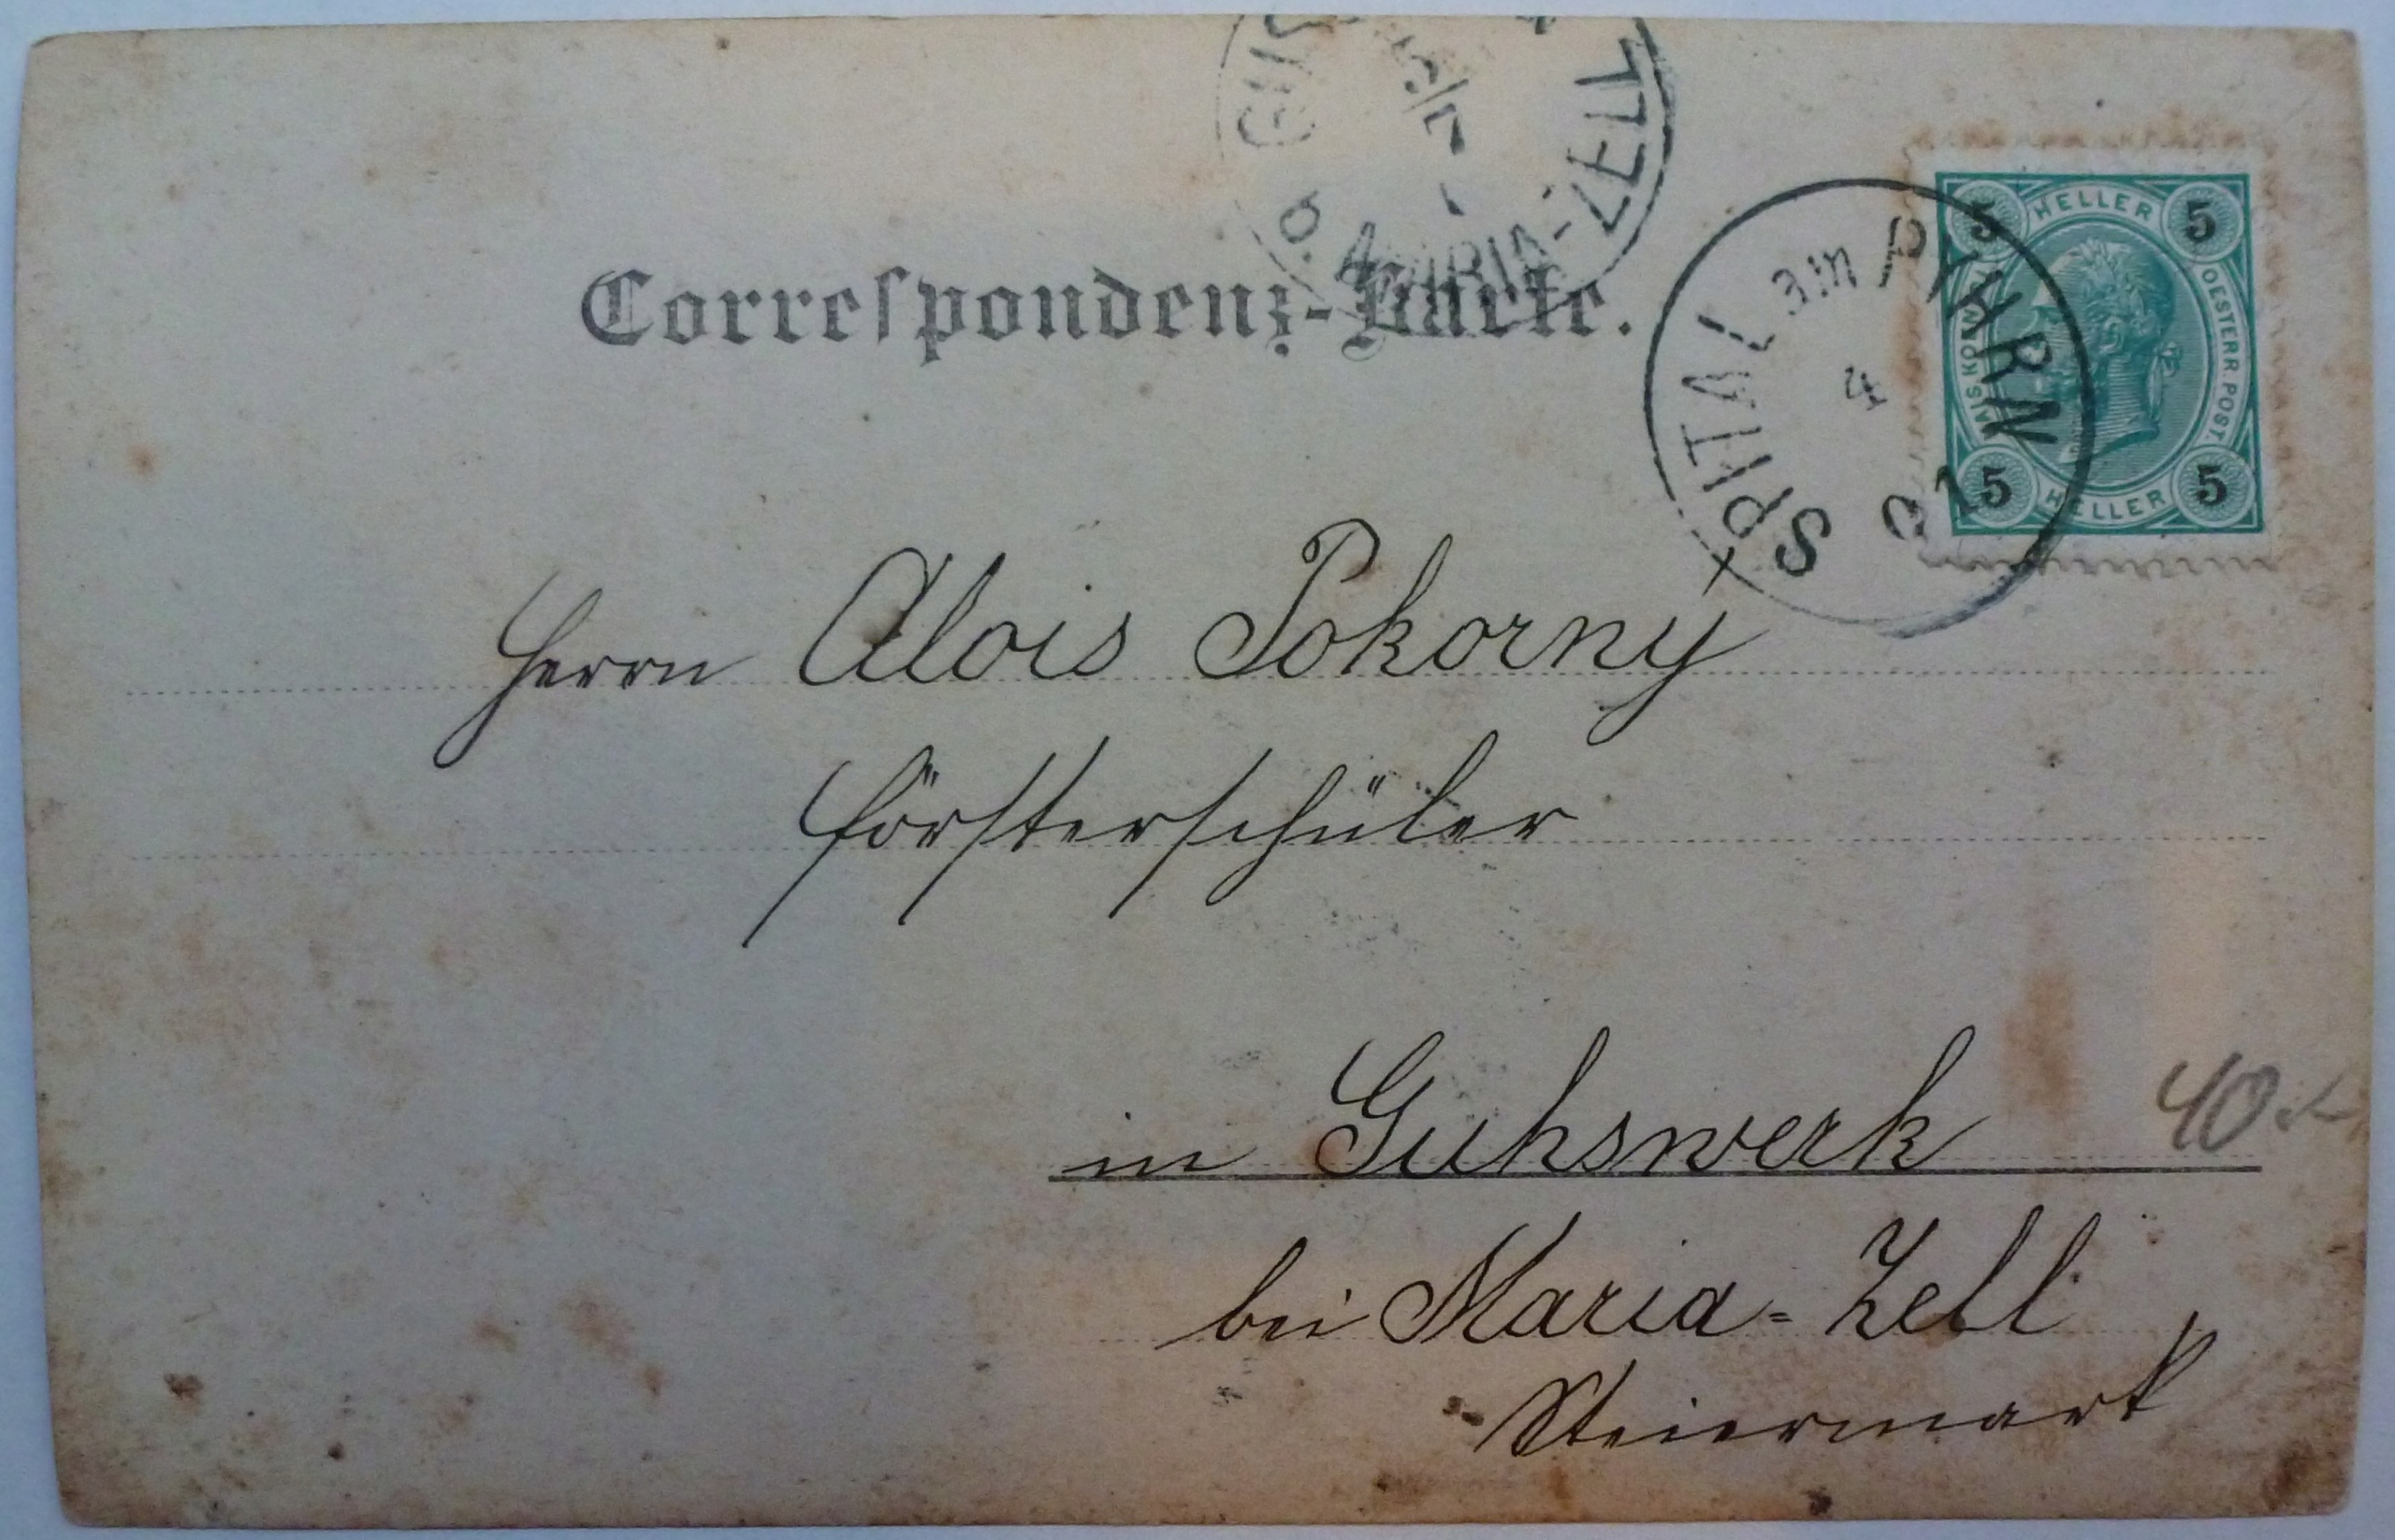 GUS
5/7
b. MARIA-ZELL
HELLER
5 5
OESTERR. POST.
5 5
HELLER
SPITAL am PYHRN
4
01
Correspondenz-Karte.
Herrn Alois Pokorny
Försterschüler
in Guhswerk
bei Maria-Zell
Steiermark
40.-